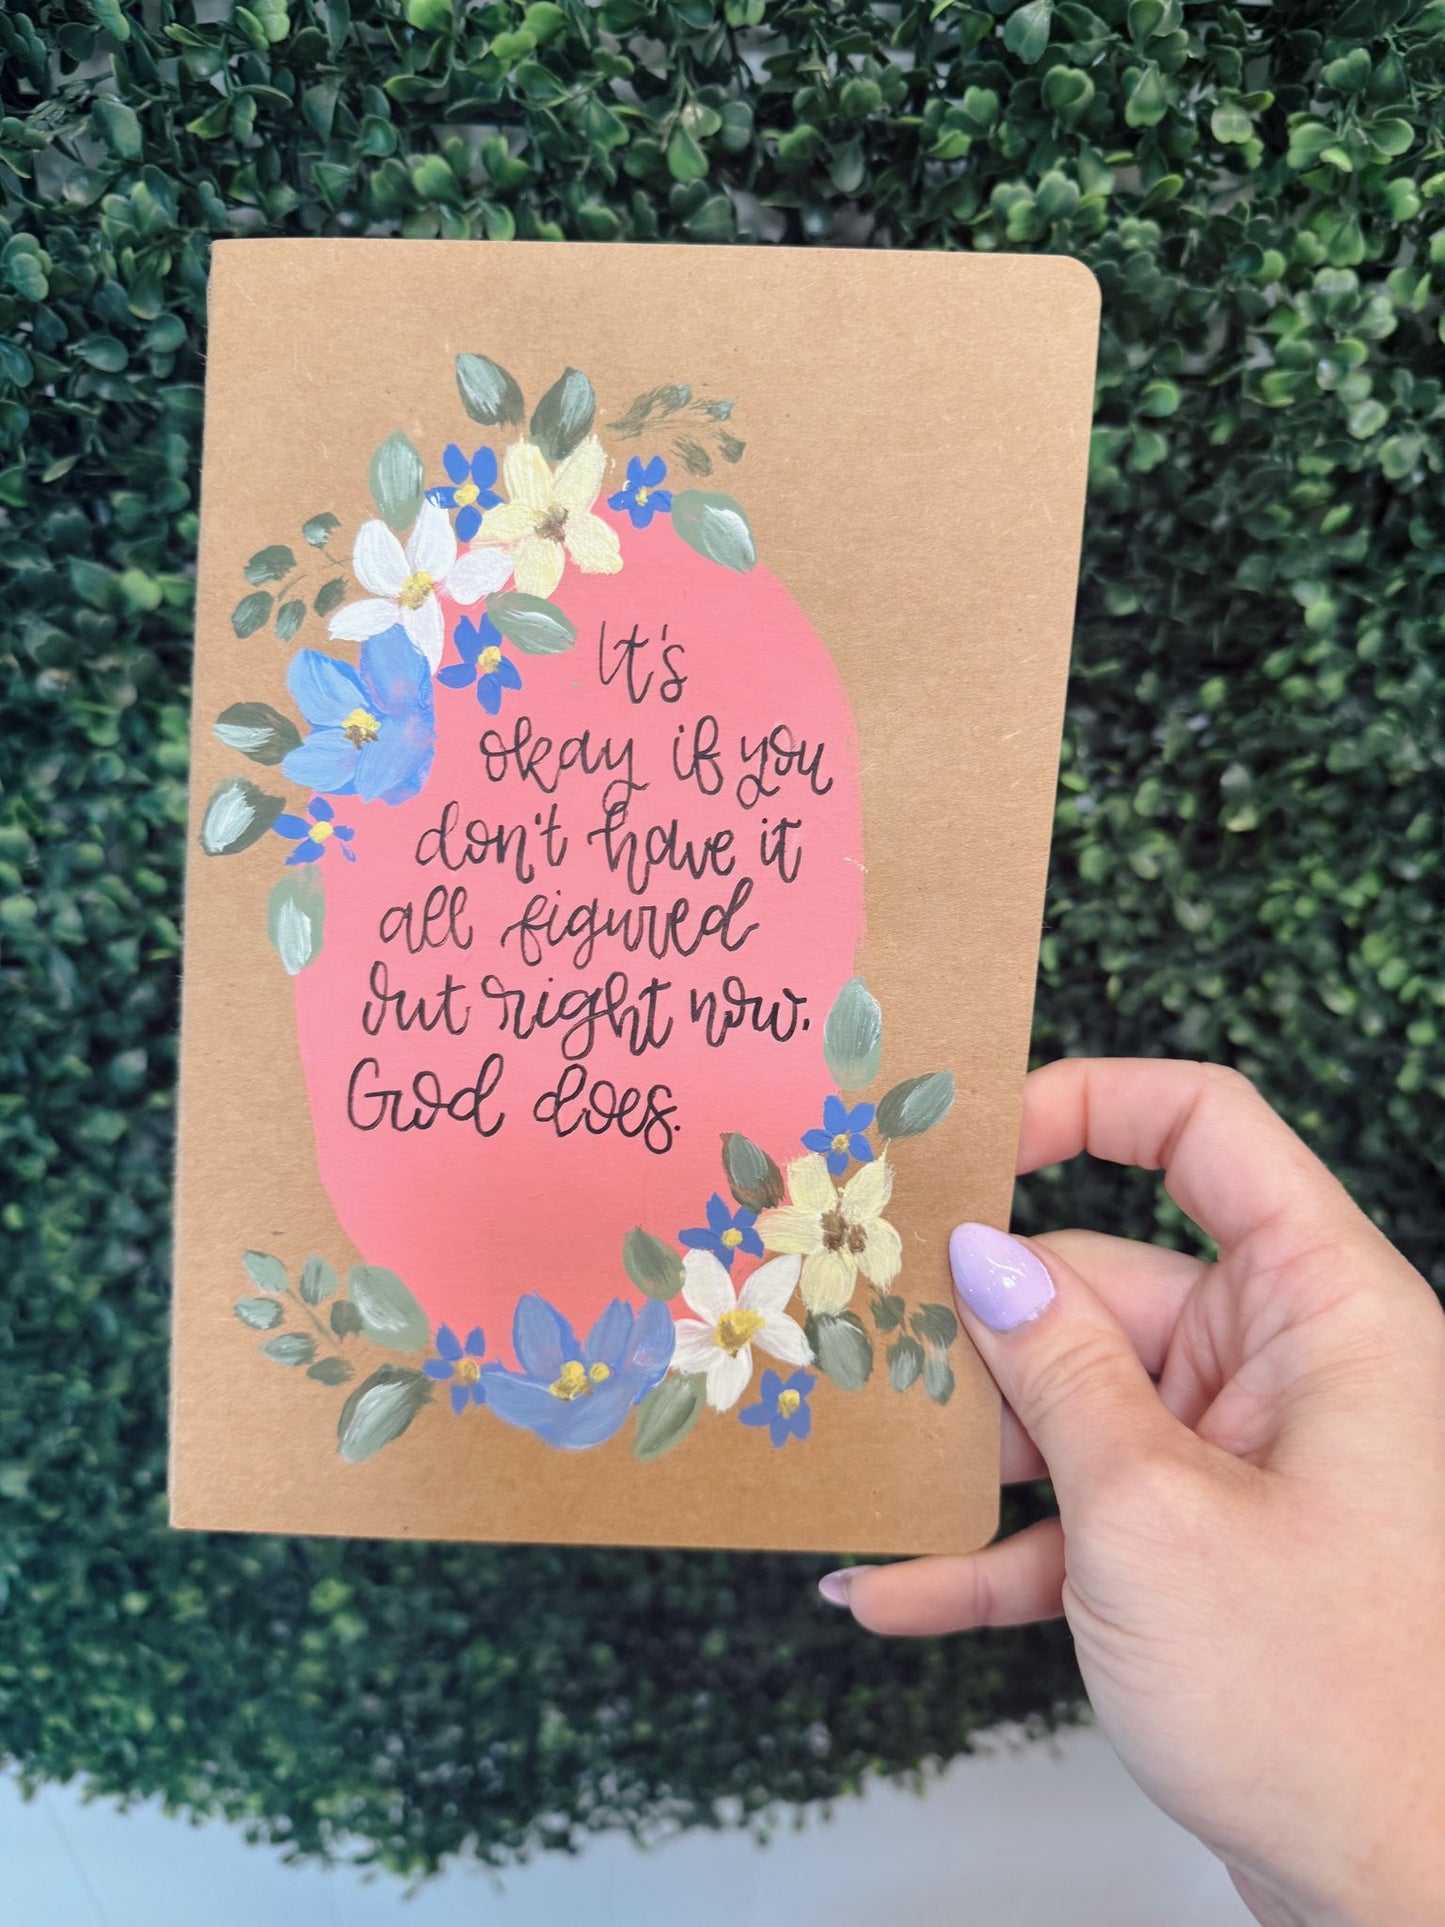 It's
okay if you
don't have it
all figured
out right now.
God does.